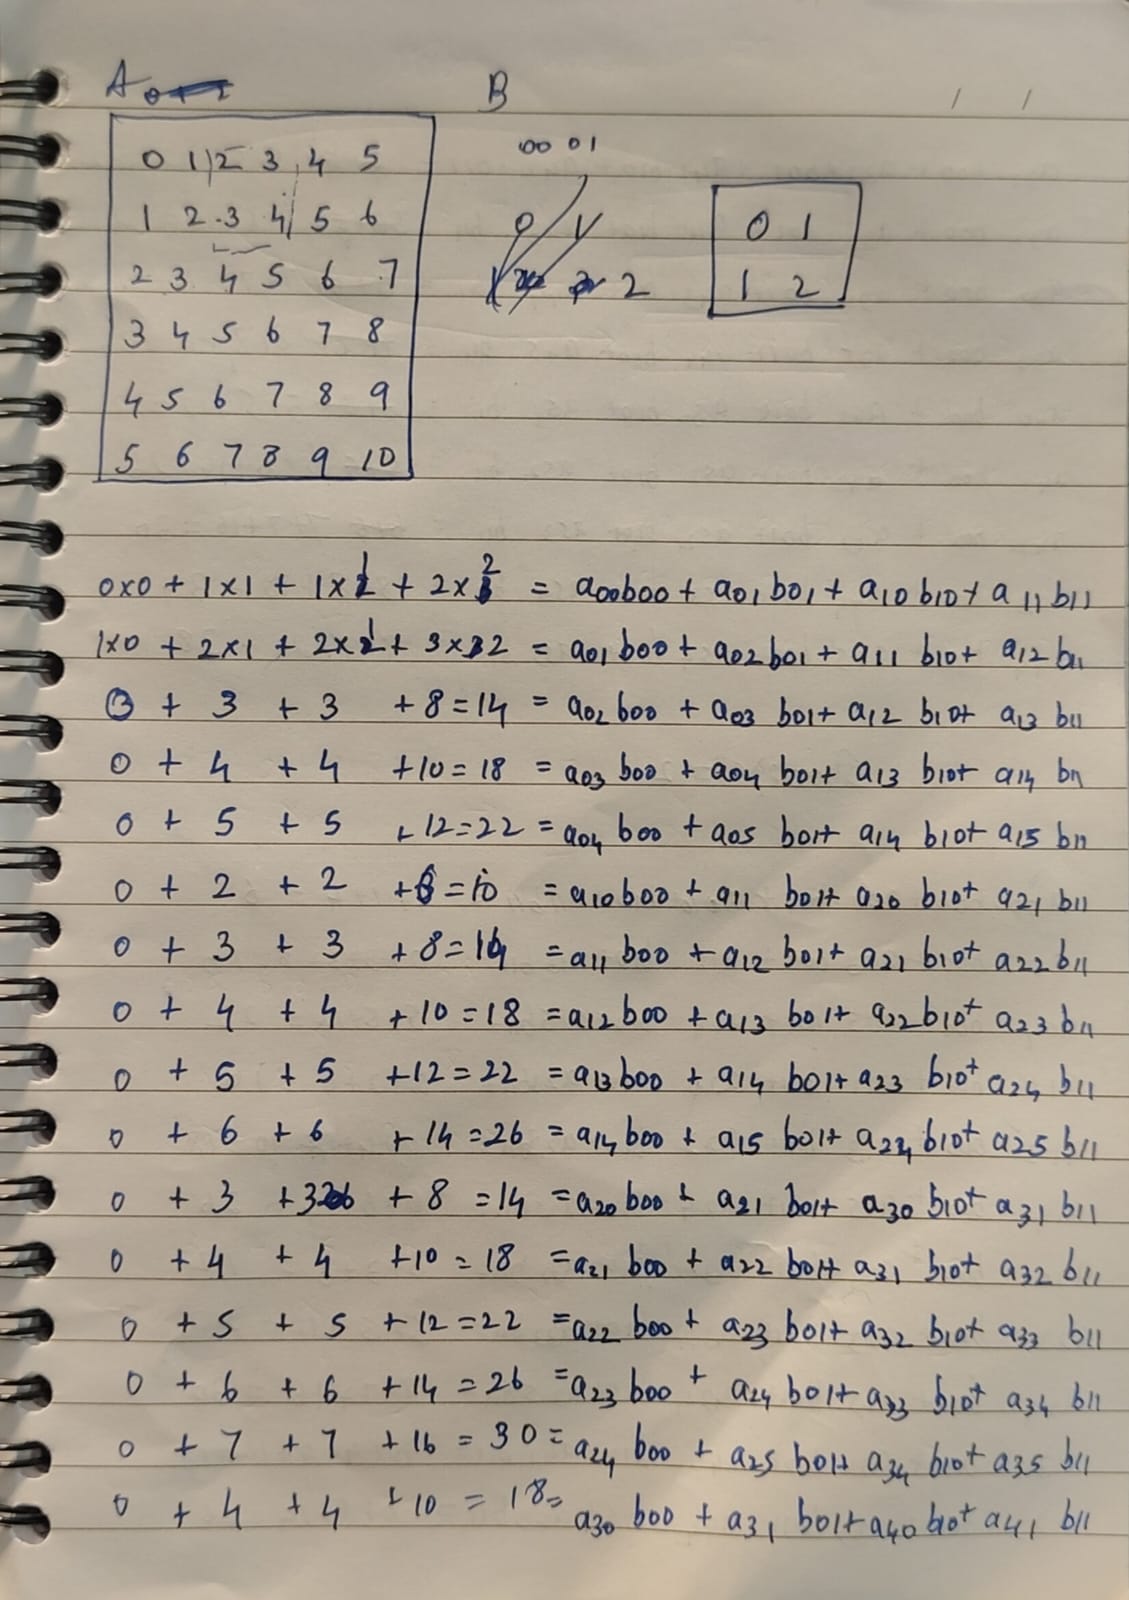 A B
00 01
0 1 2 3 4 5
1 2 3 4 5 6
2 3 4 5 6 7
3 4 5 6 7 8
4 5 6 7 8 9
5 6 7 8 9 10
0 1
2
0 1
1 2
0x0 + 1x1 + 1x1 + 2x2 = a00b00 + a01 b01 + a10 b10 + a11 b11
1x0 + 2x1 + 2x1 + 3x2 = a01 b00 + a02 b01 + a11 b10+ a12 b11
0 + 3 + 3 + 8 = 14 = a02 b00 + a03 b01+ a12 b10+ a13 b11
0 + 4 + 4 +10 = 18 = a03 b00 + a04 b01+ a13 b10+ a14 b11
0 + 5 + 5 +12=22 = a04 b00 + a05 b01+ a14 b10+ a15 b11
0 + 2 + 2 +6 = 10 = a10 b00 + a11 b01+ a20 b10+ a21 b11
0 + 3 + 3 + 8 = 14 = a11 b00 + a12 b01+ a21 b10+ a22 b11
0 + 4 + 4 + 10 = 18 = a12 b00 + a13 b01+ a22 b10+ a23 b11
0 + 5 + 5 +12 = 22 = a13 b00 + a14 b01+ a23 b10+ a24 b11
0 + 6 + 6 + 14 = 26 = a14 b00 + a15 b01+ a24 b10+ a25 b11
0 + 3 +3 + 8 = 14 = a20 b00 + a21 b01+ a30 b10+ a31 b11
0 + 4 + 4 +10 = 18 = a21 b00 + a22 b01+ a31 b10+ a32 b11
0 + 5 + 5 + 12 = 22 = a22 b00 + a23 b01+ a32 b10+ a33 b11
0 + 6 + 6 + 14 = 26 = a23 b00 + a24 b01+ a33 b10+ a34 b11
0 + 7 + 7 + 16 = 30 = a24 b00 + a25 b01+ a34 b10+ a35 b11
0 + 4 + 4 + 10 = 18 = a30 b00 + a31 b01+ a40 b10+ a41 b11